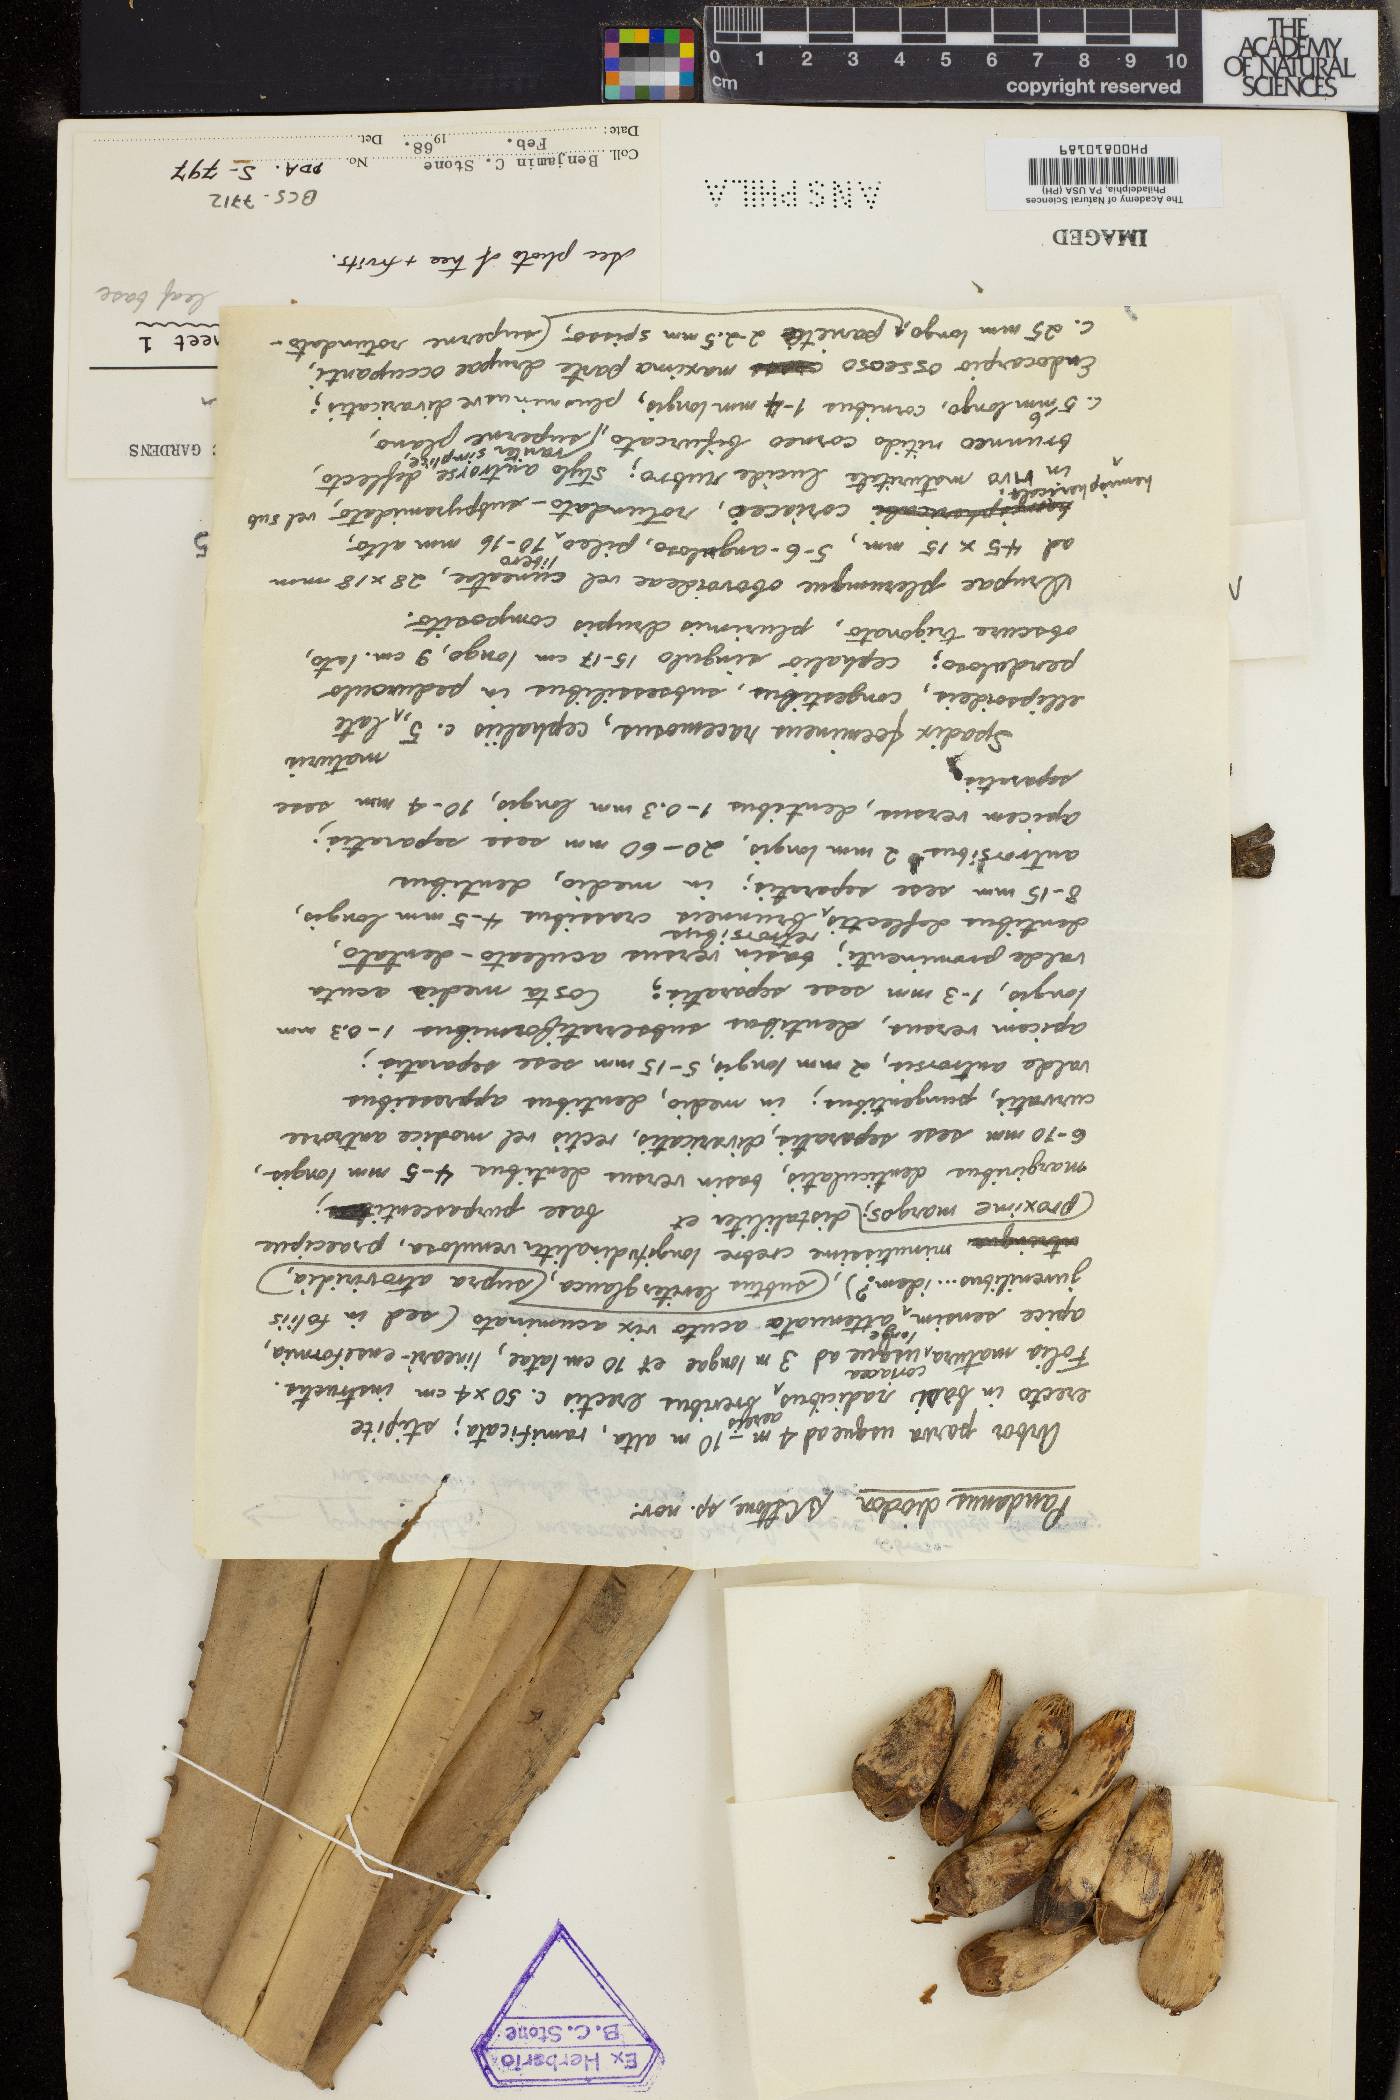 0 1 2 3 4 5 6 7 8 9 10
cm
copyright reserved
THE
ACADEMY
OF NATURAL
SCIENCES
Pandanus diodon BCStone, sp. nov.
Arbor parva usque ad 4 m - 10 m alta, ramificata; stipite
erecto in basi radicibus aereis brevibus erectis c. 50 x 4 cm instructis.
Folia matura coriacea, usque ad 3 m longae et 10 cm latae, lineari-ensiformia,
apice sensim longe attenuata acuto vix acuminato (sed in foliis
juvenilibus... idem?), (subtus leviter glauca, (supra atroviridia,)
minutissime crebre longitudinaliter venulosa, praecipue
(proxime margos; distaliliter et base purpascentibus;
marginibus denticulatis, basin versus dentibus 4-5 mm longis,
6-10 mm sese separatis, divaricatis, rectis vel modice antrorse
curvatis, pungentibus; in medio, dentibus appressibus
valde antrorsis, 2 mm longis, 5-15 mm sese separatis;
apicem versus, dentibus subserratiformibus 1-0.3 mm
longis, 1-3 mm sese separatis; Costa media acuta
valde prominenti; basin versus aculeato-dentato,
dentibus deflectis retrorsibus brunneis crassibus 4-5 mm longis,
8-15 mm sese separatis; in medio, dentibus
antrorsibus 2 mm longis, 20-60 mm sese separatis;
apicem versus, dentibus 1-0.3 mm longis, 10-4 mm sese
separatis
Spadix foemineus racemosus, cephaliis c. 5, maturis late
ellipsoideis, congestibus, subsessilibus in pedunculo
penduloso; cephalio singulo 15-17 cm longo, 9 cm. lato,
obscure trigonato, plurimis drupis composito.
Drupae plerumque obovoideae vel cuneatae, 28 x 18 mm
ad 45 x 15 mm, 5-6-anguloso, pileo libero 10-16 mm alto,
coriaceo, rotundato-subpyramidato vel sub
hemisphericali;
in vivo maturitate lucide rubro; stylo antrorse deflecto,
brunneo nitido corneo bifurcato, (rariter simplice, superne plano,
c. 5-6 mm longo, cornibus 1-4 mm longis, plus minusve divaricatis;
Endocarpio osseoso maxima parte drupae occupanti,
c. 25 mm longo, pariete 2-2.5 mm spisso, (superne rotundato-
see photo of tree + fruits.
leaf base
heet 1
C GARDENS
BCS-7712
Coll. Benjamin C. Stone No. PDA. S-797
Date: Feb. 1968. Det.
ANSPHILA
IMAGED
The Academy of Natural Sciences
Philadelphia, PA USA (PH)
PH00810189
Ex Herbario
B.C. Stone